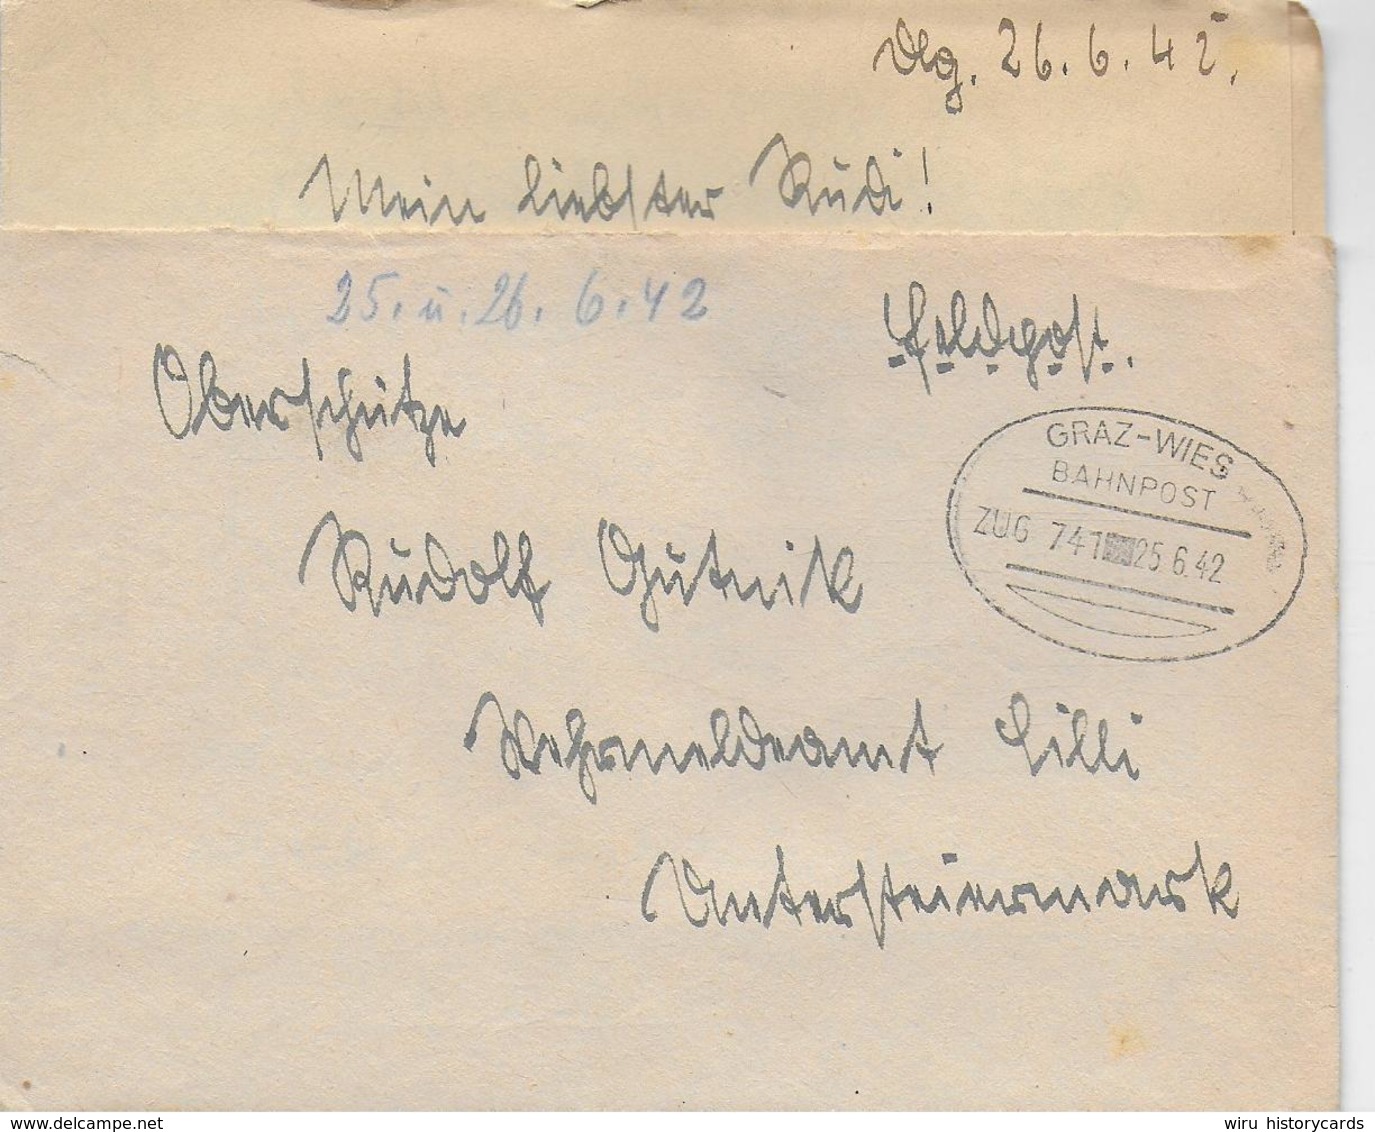 Dlg. 26.6.42.
Mein liebster Rudi!
25. u. 26. 6. 42
Feldpost.
Oberschütze
GRAZ-WIES
BAHNPOST
ZUG 741 25 6.42
Rudolf Gutnik
Wehrmeldeamt Cilli
Untersteiermark
wiru historycards
www.delcampe.net